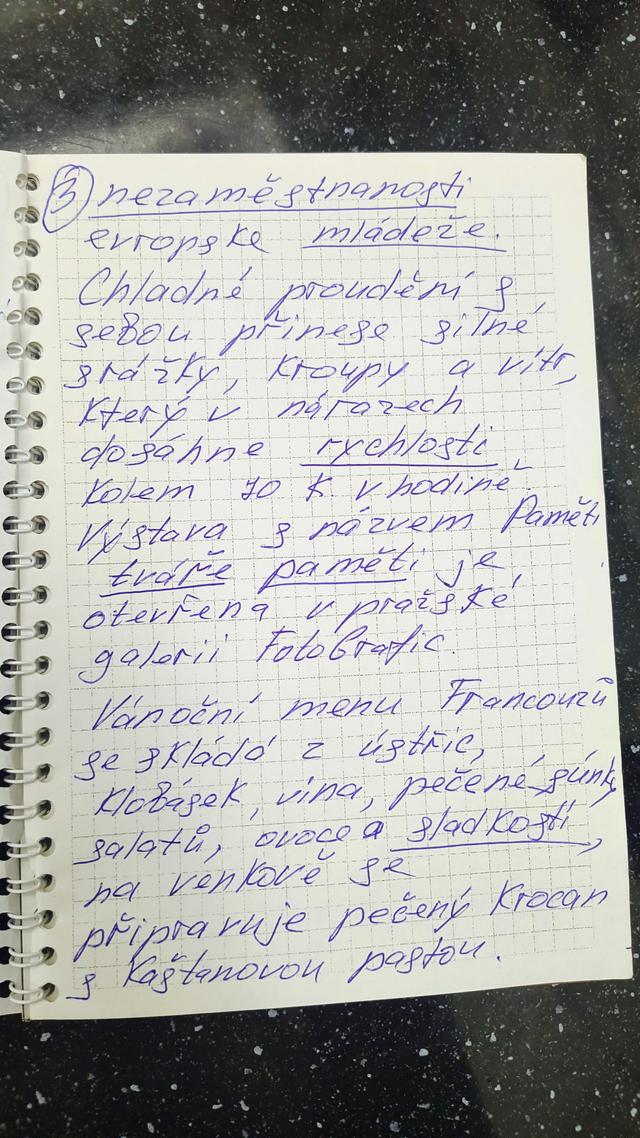 3 nezaměstnanosti
evropske mládeže.
Chladné proudění s
sebou přinese silné
srážky, kroupy a vítr,
který v nárazech
dosáhne rychlosti
kolem 70 k v hodině.
Výstava s názvem Paměti
tváře paměti je
otevřena v pražské
galerii Fotografic.
Vánoční menu Francouzů
se skládá z ústřic,
klobásek, vína, pečené šunky,
salatů, ovoce a sladkosti,
na venkově se
připravuje pečený krocan
s kaštanovou pastou.